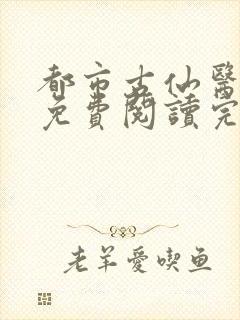 都市古仙醫
免費閱讀完
老羊愛喫鱼